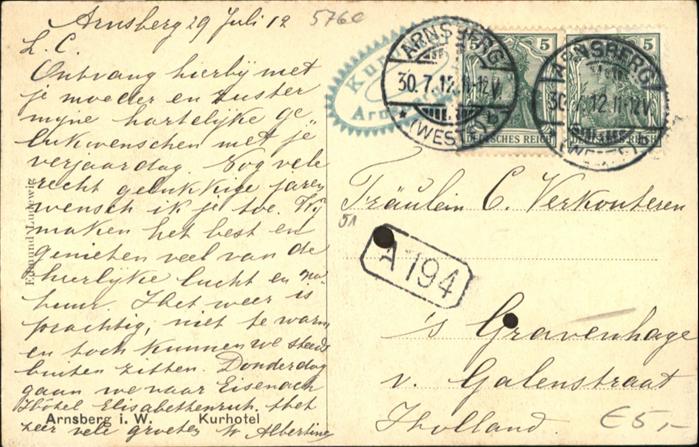 Arnsberg 29 Juli 12
L. C.
Ontvang hierbij met
je moeder en zuster
myne hartelyke ge
lukwenschen met je
verjaardag. Nog vele
recht gelukkige jaren
wensch ik je toe. Wij
maken het best en
genieten veel van de
heerlyke lucht en na
tuur. Het weer is
prachtig, niet te warm
en toch kunnen we steeds
buiten zitten. Donderdag
gaan we naar Eisenach
Hotel Elisabethenruh. Met
zeer vele groeten Albertine
Arnsberg i. W. Kurhotel
Edmund Ludewig
5760
Kur
Arn
ARNSBERG
30.7.12.11-12V.
* (WESTF.) b
5
DEUTSCHES REICH
ARNSBERG
30. 12.11-12V.
(WESTF.)
5
REICH
51
Fräulein C. Verkouteren
A 194
's Gravenhage
v. Galenstraat
Holland.
€5,-